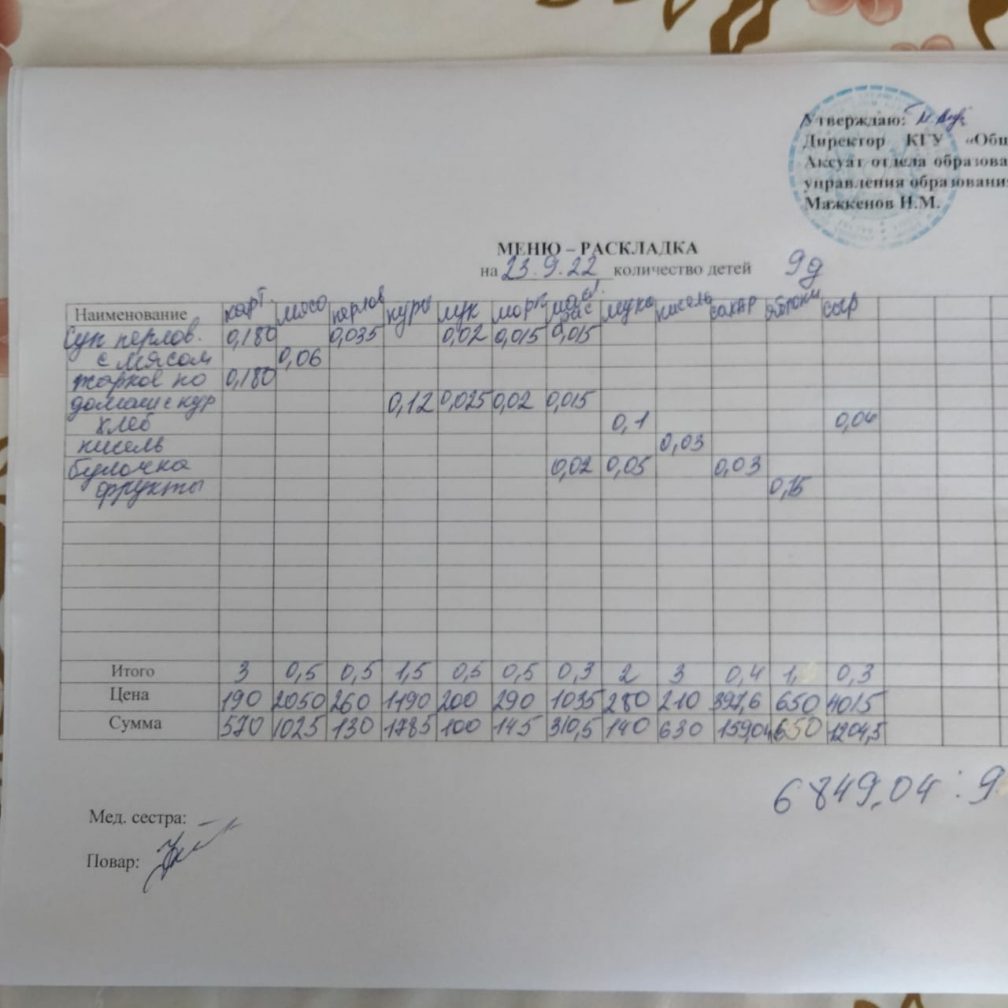 Утверждаю:
Директор КГУ «Общ
Аксуат отдела образова
управления образовани
Мажкенов И.М.
МЕНЮ – РАСКЛАДКА
на 23.9.22 количество детей 9д
Наименование карт. мясо перлов куры лук морк мас зас мука кисель сахар яблоки сыр
Суп перлов. 0,180 0,035 0,02 0,015 0,015
с мясом 0,06
жаркое по 0,180
домашн с кур 0,12 0,025 0,02 0,015
хлеб 0,1 0,04
кисель 0,03
булочка 0,02 0,05 0,03
фрукты 0,15
Итого 3 0,5 0,5 1,5 0,5 0,5 0,3 2 3 0,4 1, 0,3
Цена 190 2050 260 1190 200 290 1035 280 210 397,6 650 4015
Сумма 570 1025 130 1785 100 145 310,5 140 630 159,04 650 1204,5
6849,04 : 9
Мед. сестра:
Повар: